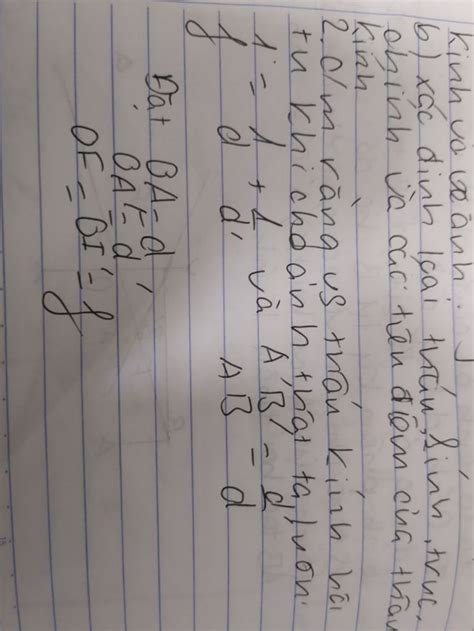 kính và vẽ ảnh.
b) xác định loại thấu kính, trục
chính và các tiêu điểm của thấu
kính
2. c/m rằng vs thấu kính hội
tụ khi cho ảnh thật ta luôn
1/f = 1/d + 1/d' và A'B'/AB = d'/d
Đặt OA = d
OA' = d'
OF = OF' = f